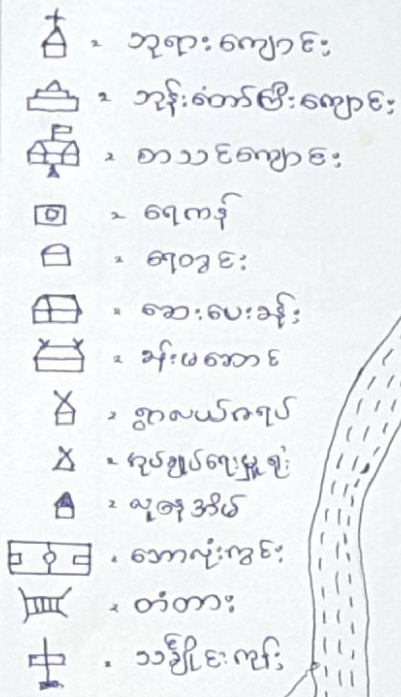 = ဘုရားကျောင်း
= ဘုန်းတော်ကြီးကျောင်း
= စာသင်ကျောင်း
= ရေကန်
= ရေတွင်း
= ဆေးပေးခန်း
= ခန်းမဆောင်
= ရွာလယ်ဇရပ်
= အုပ်ချုပ်ရေးမှူးရုံး
= လူနေအိမ်
= ဘောလုံးကွင်း
= တံတား
= သင်္ချိုင်းကုန်း